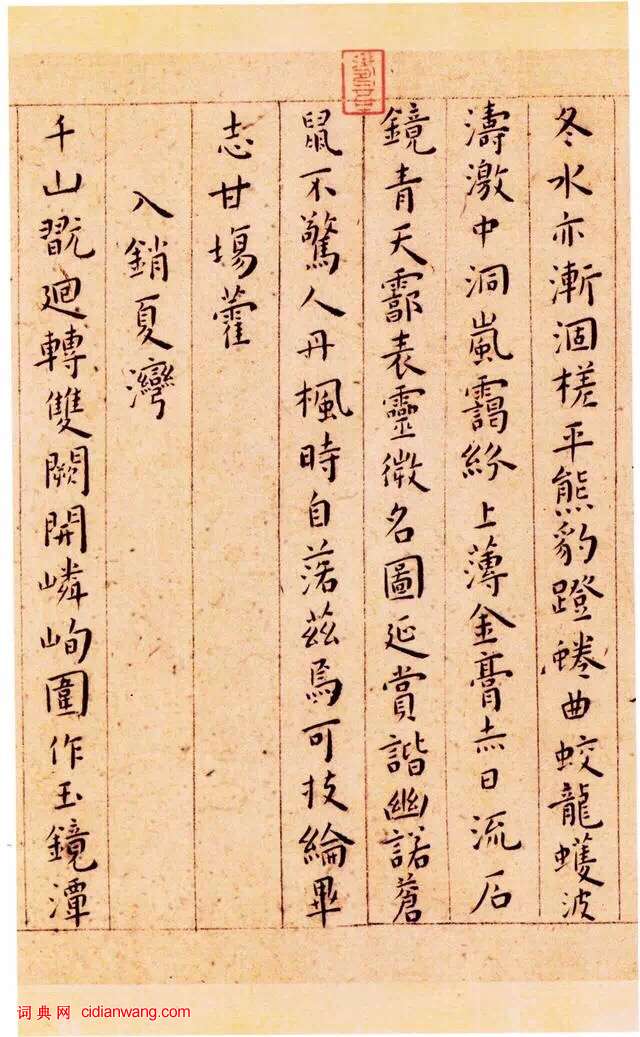 冬水亦漸涸槎平熊豹蹬蜷曲蛟龍蠖波
濤激中洞嵐靄紛上薄金膏赤日流石
鏡青天霩表靈徵名圖延賞諧幽諾蒼
鼠不驚人丹楓時自落茲焉可投綸畢
志甘場藿
入銷夏灣
千山翫廻轉雙闕開嶙峋圍作玉鏡潭
词典网 cidianwang.com